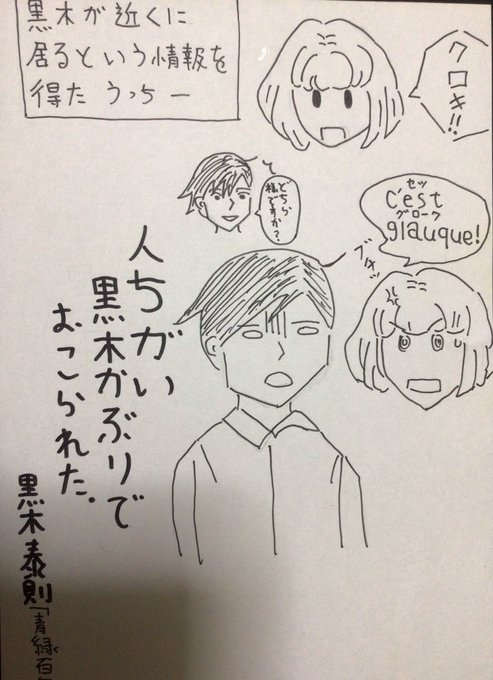 黒木が近くに
居るという情報を
得たうっちー
クロキ!!
どちら
様ですか?
セッ
C'est
グローク
glauque!
ブチッ
人ちがい
黒木かぶりで
おこられた.
黒木泰則
「青緑百